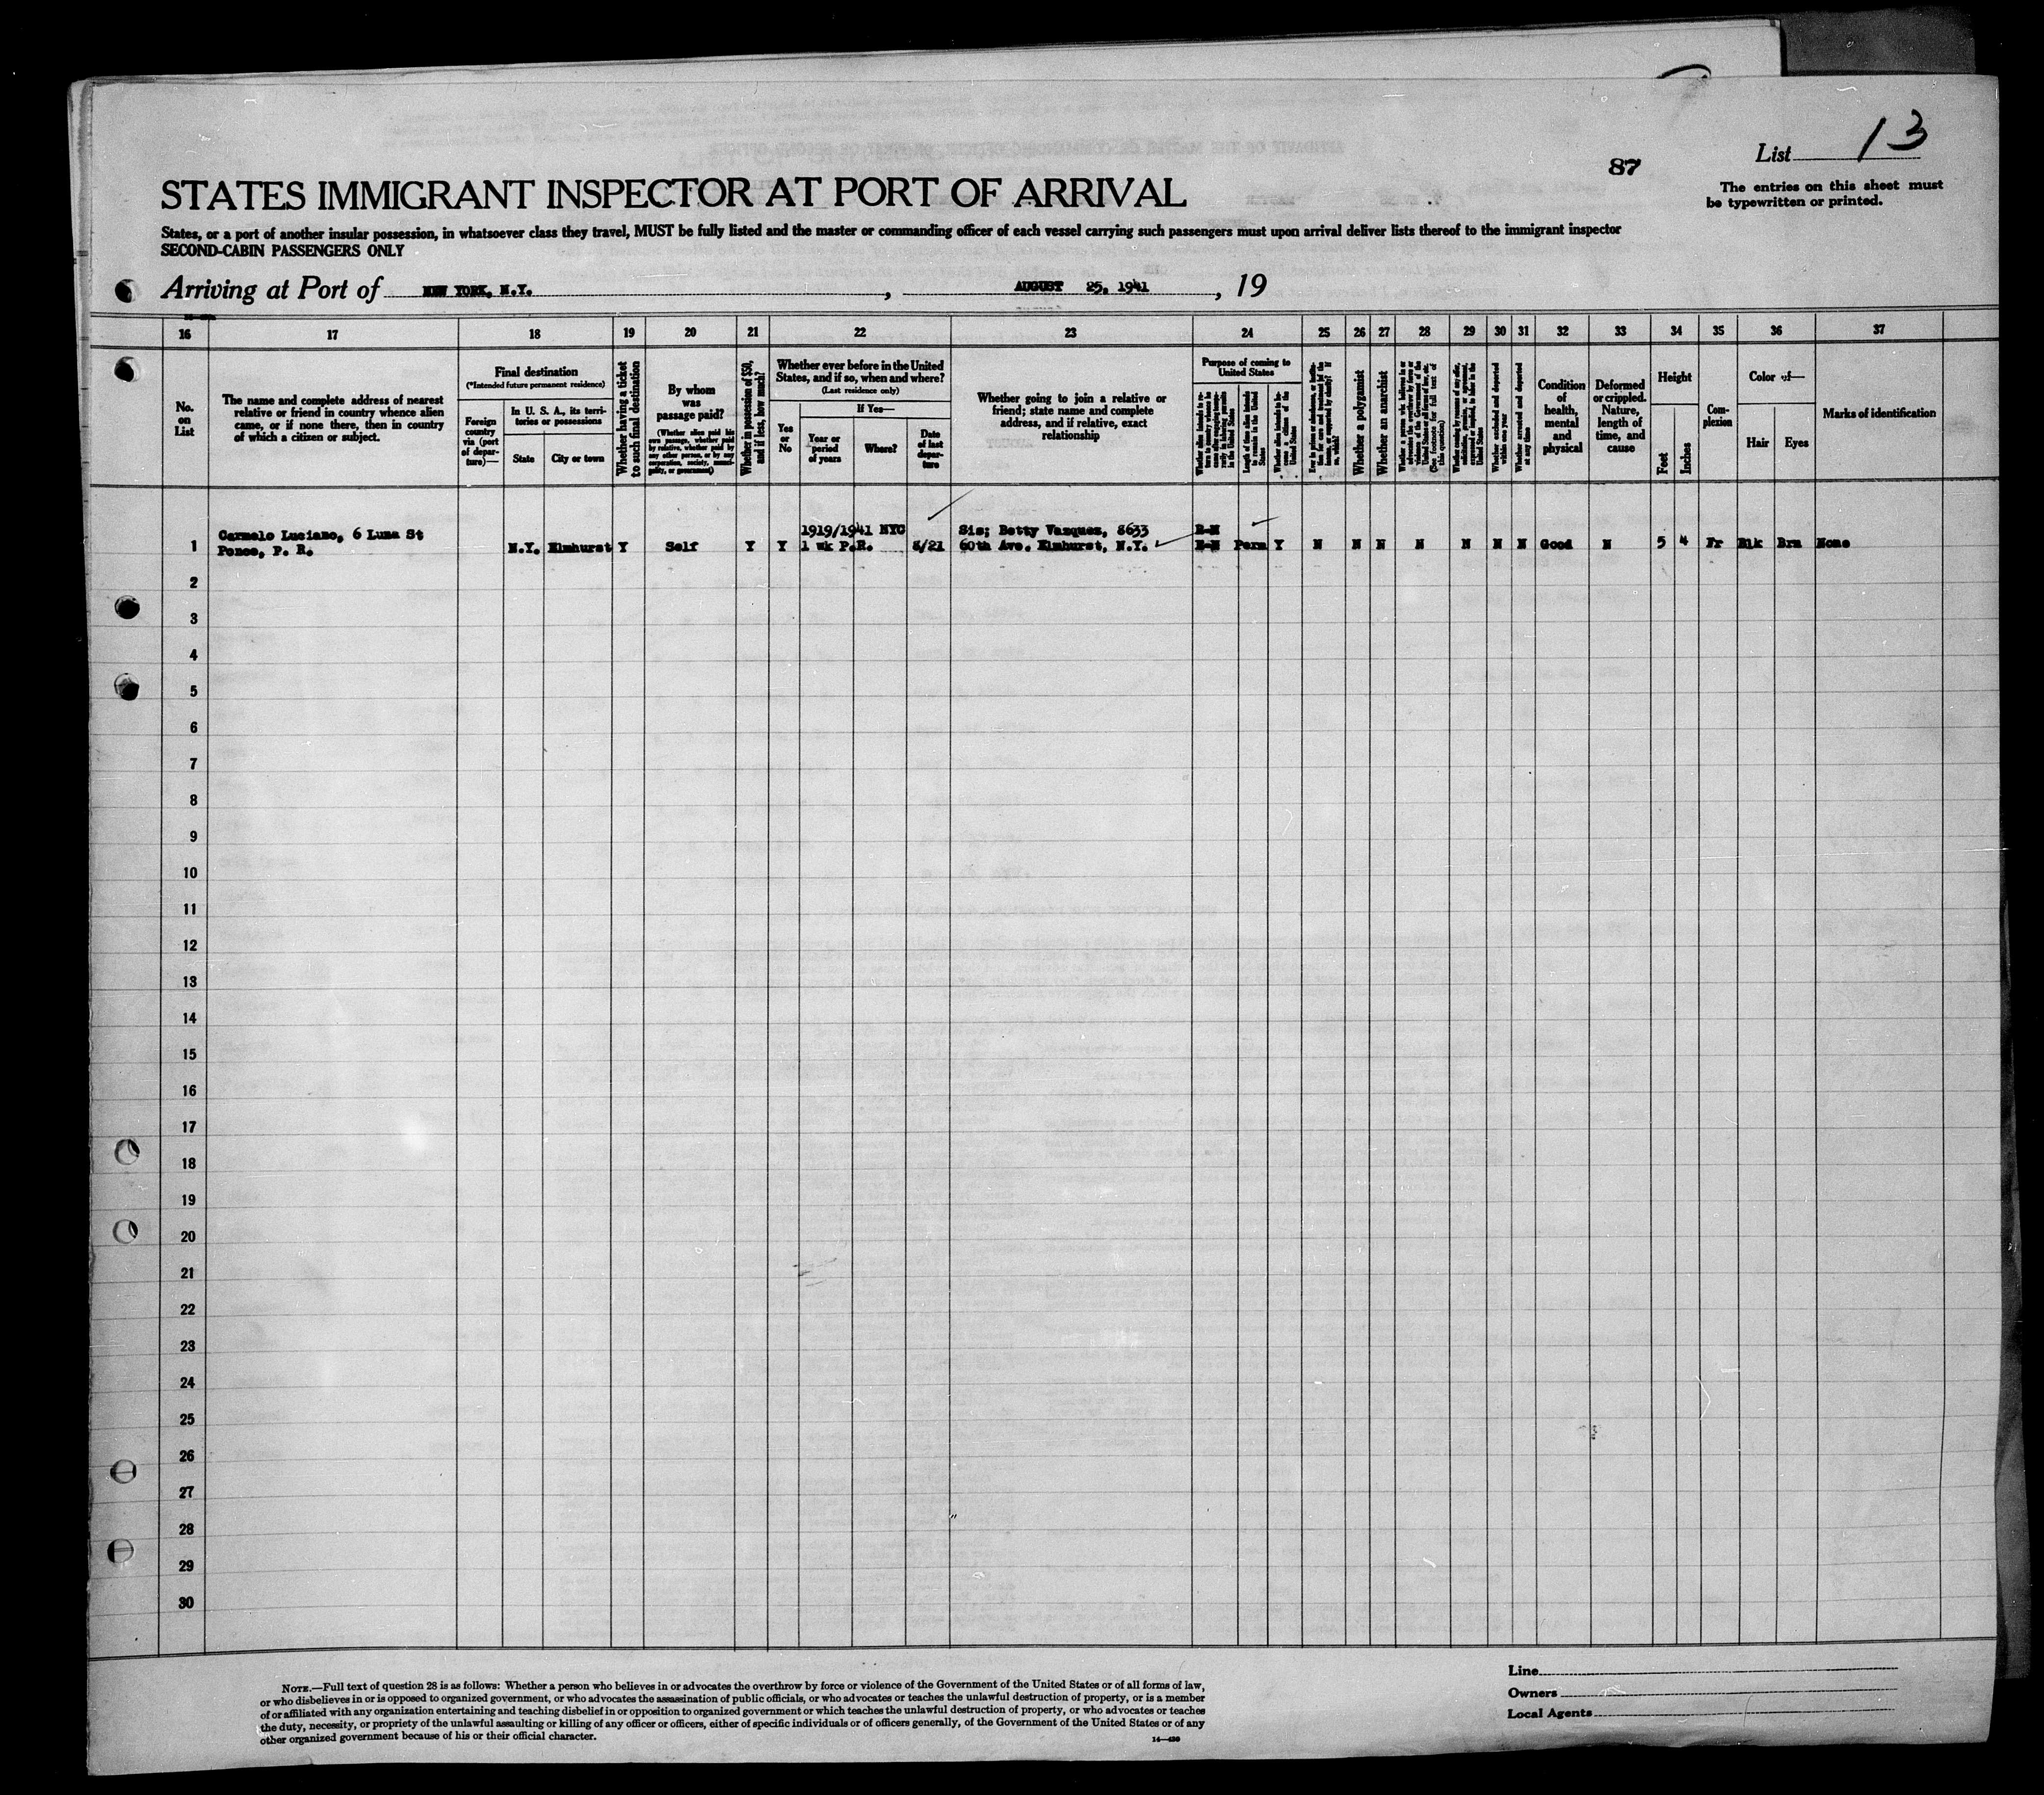 List 13
87
The entries on this sheet must
be typewritten or printed.
STATES IMMIGRANT INSPECTOR AT PORT OF ARRIVAL
States, or a port of another insular possession, in whatsoever class they travel, MUST be fully listed and the master or commanding officer of each vessel carrying such passengers must upon arrival deliver lists thereof to the immigrant inspector
SECOND-CABIN PASSENGERS ONLY
Arriving at Port of NEW YORK, N.Y. , AUGUST 25, 1941 , 19
16 17 18 19 20 21 22 23 24 25 26 27 28 29 30 31 32 33 34 35 36 37
No.
on
List
The name and complete address of nearest
relative or friend in country whence alien
came, or if none there, then in country
of which a citizen or subject.
Final destination
(*Intended future permanent residence)
Foreign
country
via (port
of depar-
ture)—
In U. S. A., its terri-
tories or possessions
State
City or town
Whether having a ticket
to such final destination
By whom
was
passage paid?
(Whether alien paid his
own passage, whether paid
by relative, whether paid by
any other person, or by any
corporation, society, munici-
pality, or government)
Whether in possession of $50,
and if less, how much?
Whether ever before in the United
States, and if so, when and where?
(Last residence only)
Yes
or
No
If Yes—
Year or
period
of years
Where?
Date
of last
depar-
ture
Whether going to join a relative or
friend; state name and complete
address, and if relative, exact
relationship
Purpose of coming to
United States
Length of time alien intends
to remain in the United
States
Whether alien intends to be-
come a citizen of the
United States
Whether a polygamist
Whether an anarchist
Whether excluded and deported
within one year
Whether arrested and deported
at any time
Condition
of
health,
mental
and
physical
Deformed
or crippled.
Nature,
length of
time, and
cause
Height
Feet
Inches
Com-
plexion
Color of—
Hair
Eyes
Marks of identification
Carmelo Luciano, 6 Luna St 1919/1941 NYC Sis; Betty Vazquez, 8633
1 Ponce, P. R. N.Y. Elmhurst Y Self Y Y 1 wk P.R. 8/21 60th Ave. Elmhurst, N.Y. Perm Y N N N N N N N Good N 5 4 Fr Blk Brn None
2
3
4
5
6
7
8
9
10
11
12
13
14
15
16
17
18
19
20
21
22
23
24
25
26
27
28
29
30
NOTE.—Full text of question 28 is as follows: Whether a person who believes in or advocates the overthrow by force or violence of the Government of the United States or of all forms of law,
or who disbelieves in or is opposed to organized government, or who advocates the assassination of public officials, or who advocates or teaches the unlawful destruction of property, or is a member
of or affiliated with any organization entertaining and teaching disbelief in or opposition to organized government or which teaches the unlawful destruction of property, or who advocates or teaches
the duty, necessity, or propriety of the unlawful assaulting or killing of any officer or officers, either of specific individuals or of officers generally, of the Government of the United States or of any
other organized government because of his or their official character.
14—430
Line
Owners
Local Agents